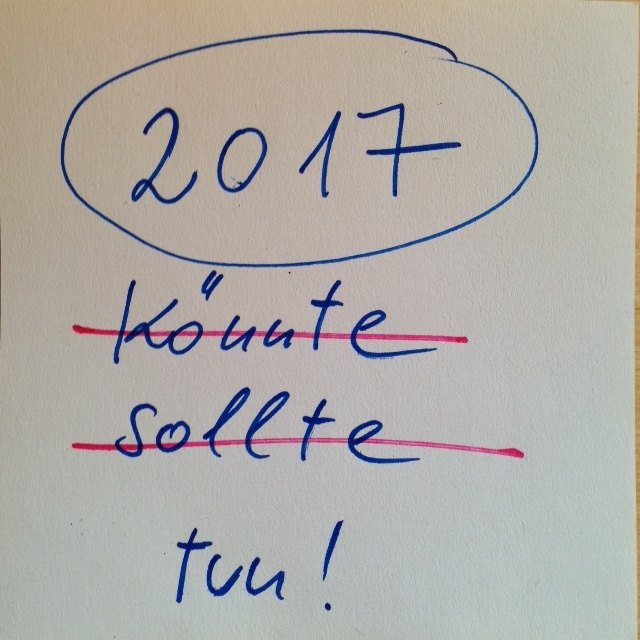 2017
könnte
sollte
tun!